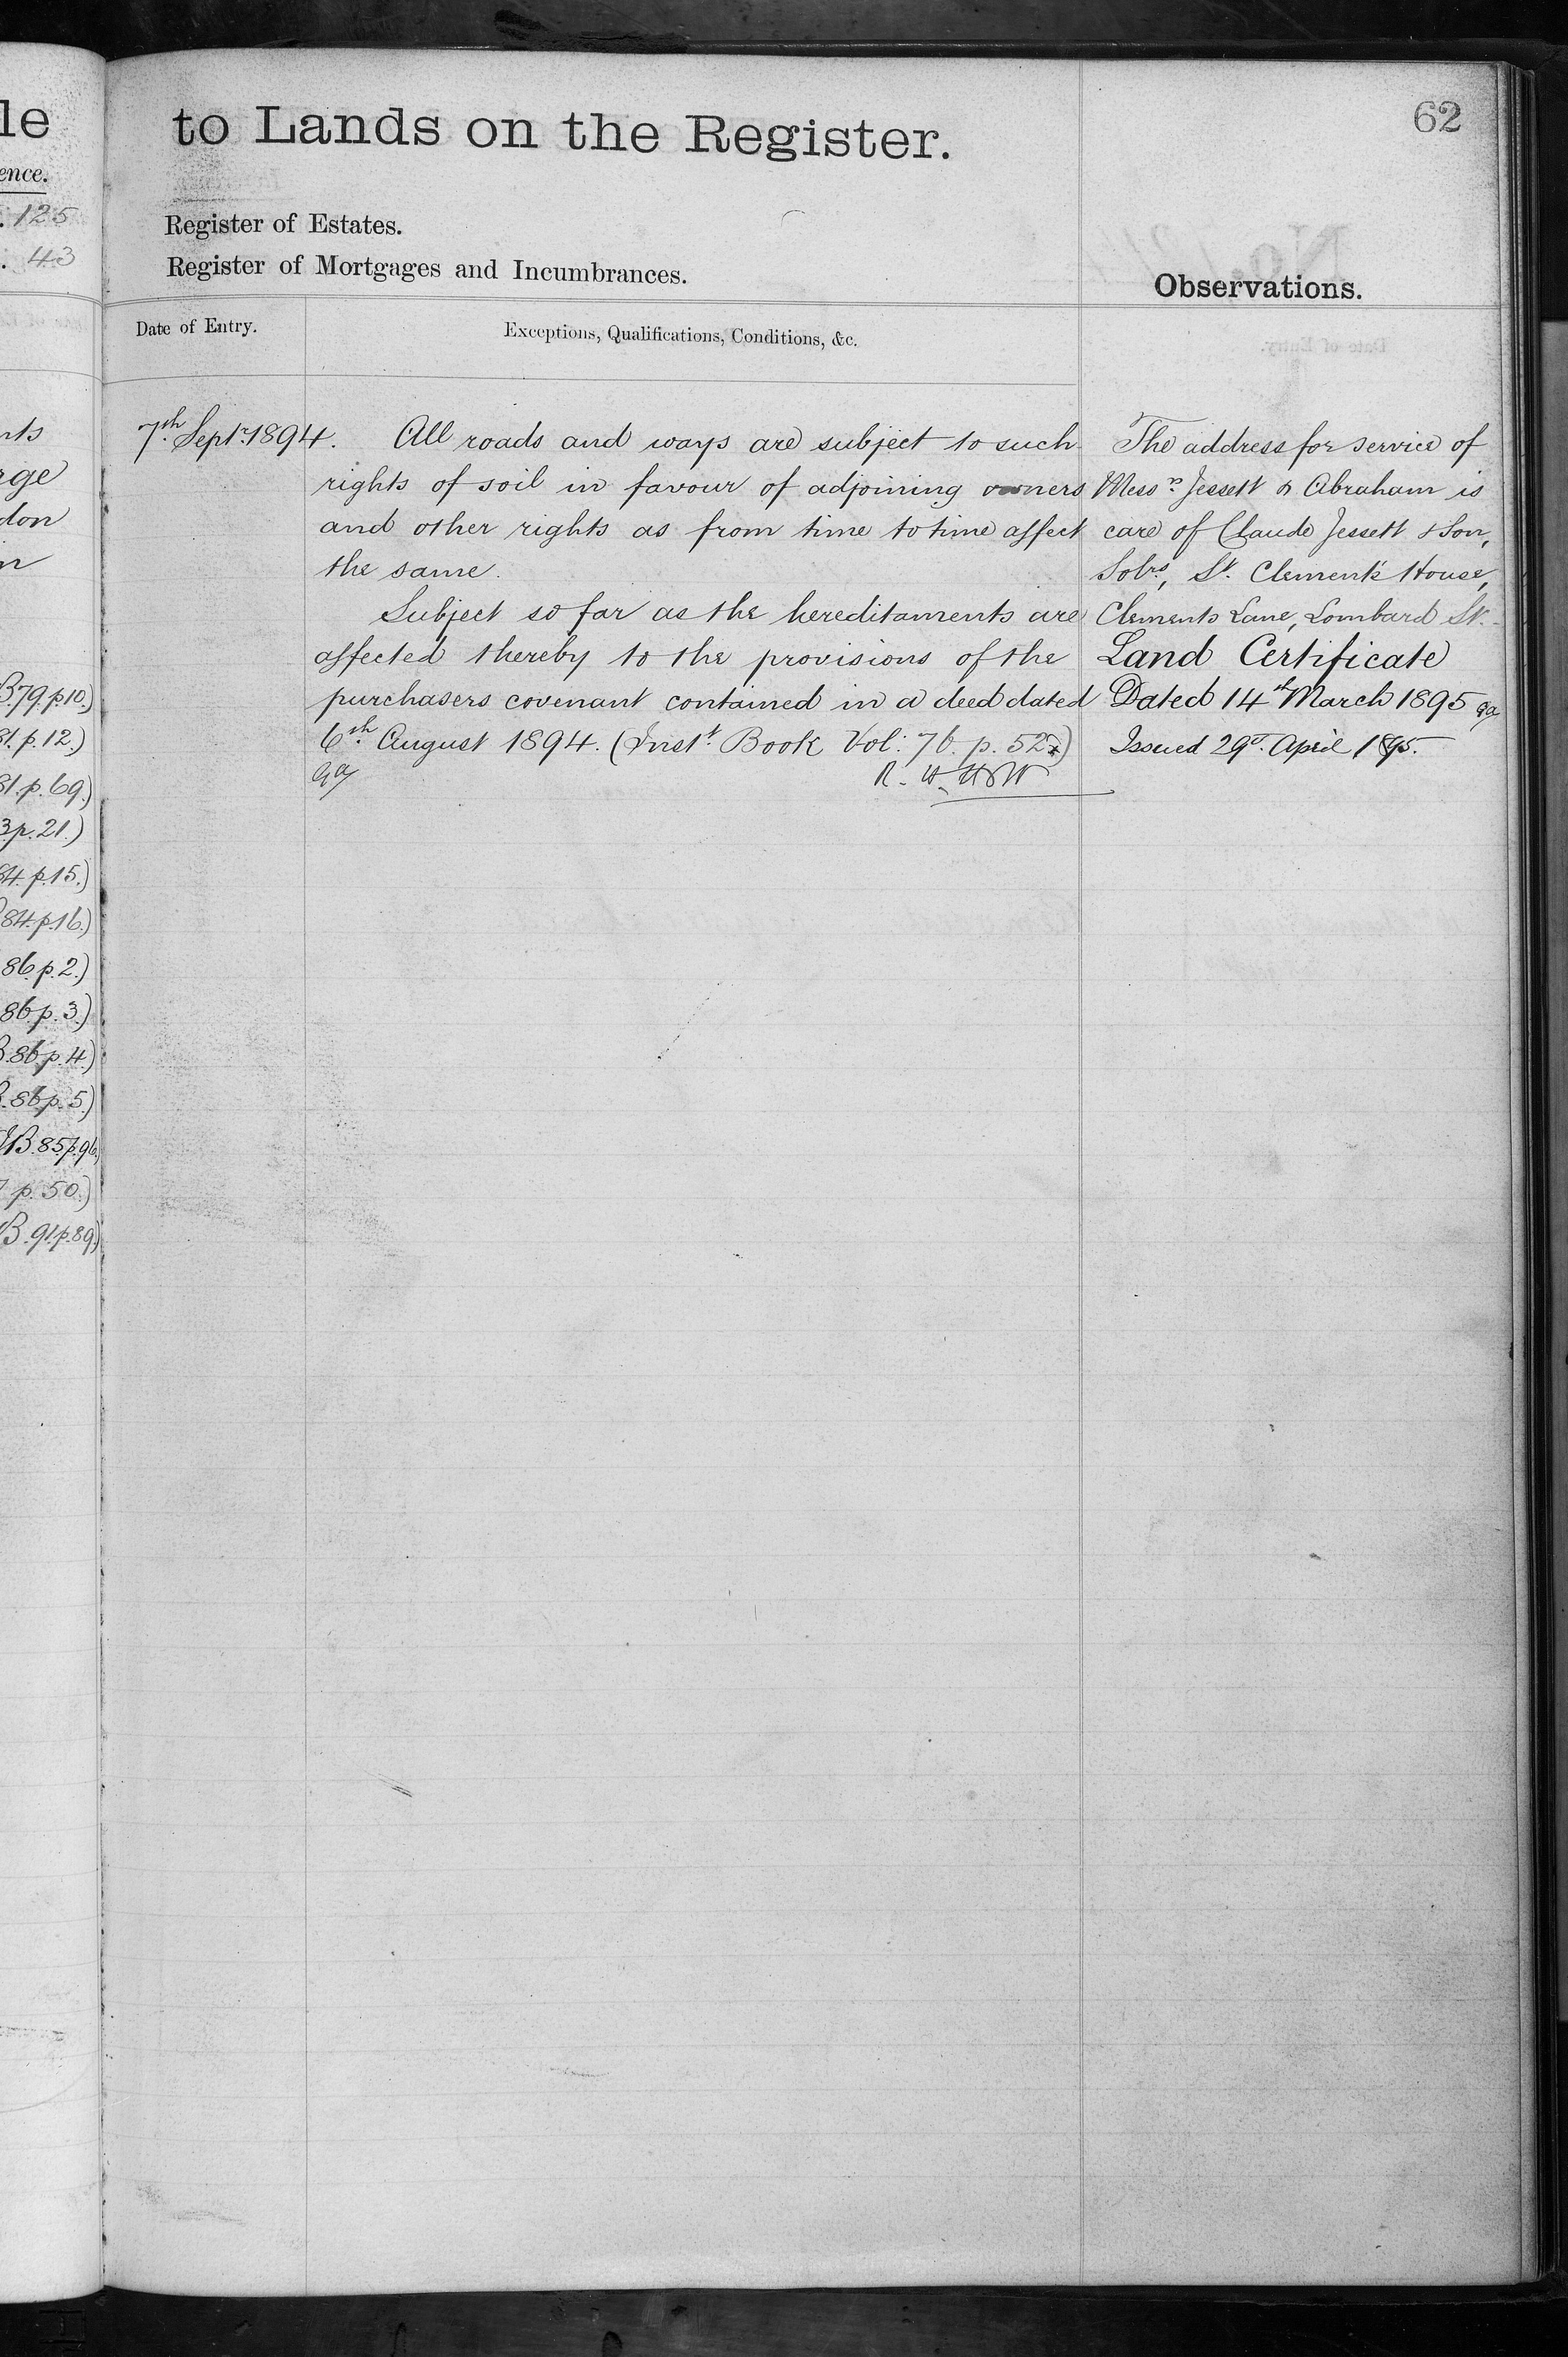 62
to Lands on the Register.
Register of Estates.
Register of Mortgages and Incumbrances.
Observations.
Date of Entry.
Exceptions, Qualifications, Conditions, &c.
7th Septr. 1894.
All roads and ways are subject to such
rights of soil in favour of adjoining owners
and other rights as from time to time affect
the same.
Subject so far as the hereditaments are
affected thereby to the provisions of the
purchasers covenant contained in a deed dated
6th August 1894. (Inst. Book Vol: 76. p. 52)
The address for service of
Messrs. Jessett & Abraham is
care of Claude Jessett & Son,
Solrs, St. Clement's House,
Clements Lane, Lombard St.
Land Certificate
Dated 14th March 1895
Issued 29th April 1895.
le
ence.
. 125
. 43
nts
rge
don
B.79.p.10.)
81.p.12.)
81.p.69.)
3p.21.)
84.p.15.)
84.p.16.)
86.p.2.)
86p.3.)
B.86.p.4.)
B.86p.5.)
IB.85.p.96.)
7 p.50.)
B.91.p.89.)